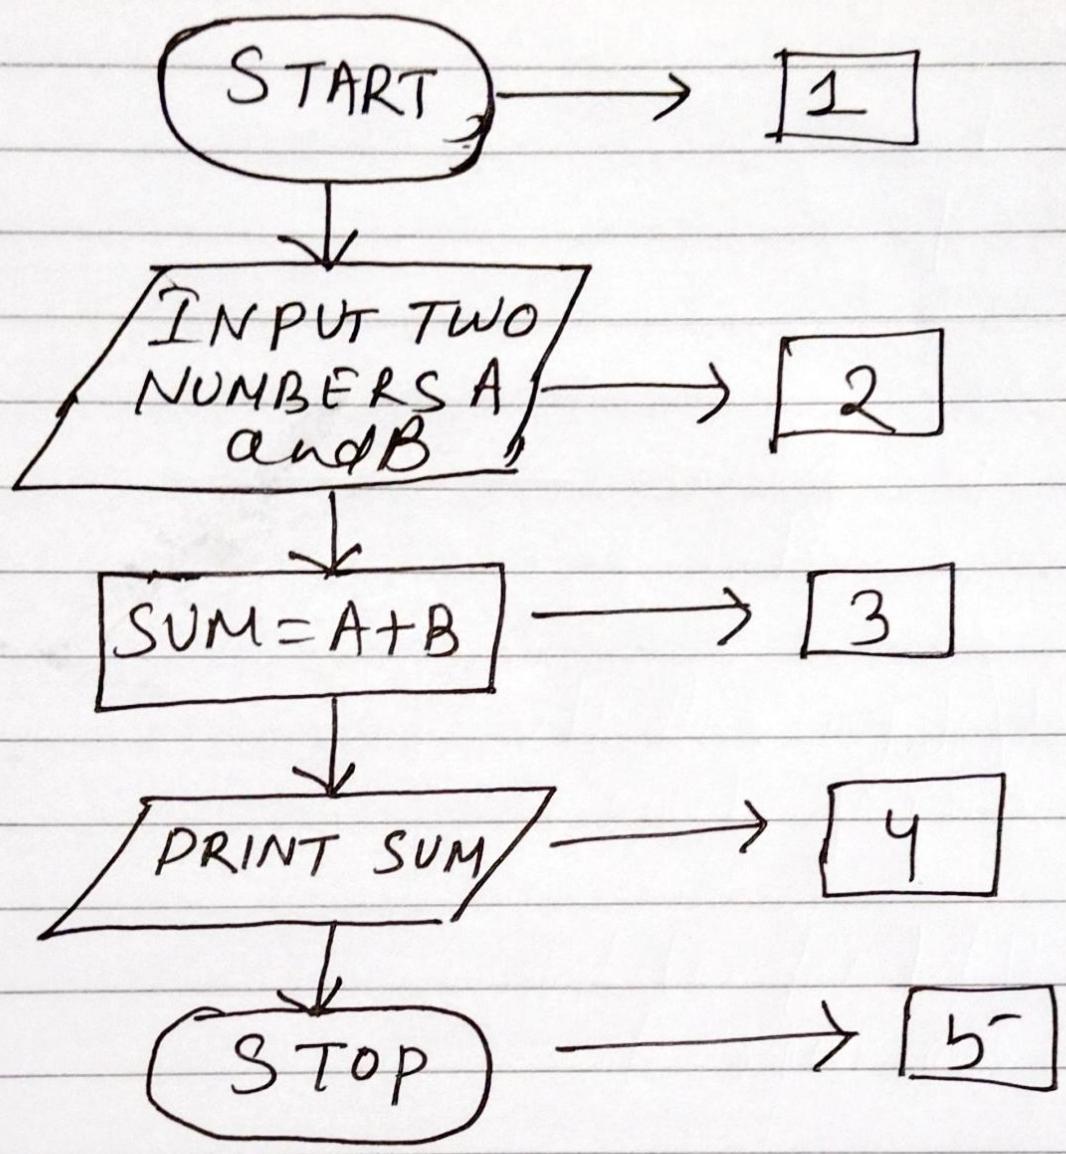 START
1
INPUT TWO
NUMBERS A
and B
2
SUM = A+B
3
PRINT SUM
4
STOP
5